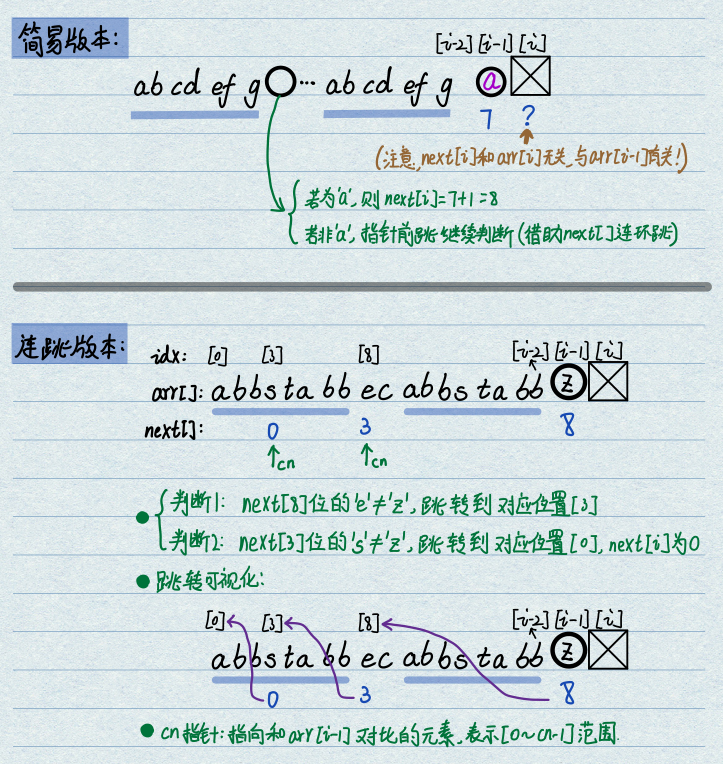 简易版本:
[i-2] [i-1] [i]
ab cd ef g ○ ··· ab cd ef g a
7 ?
(注意,next[i]和arr[i]无关,与arr[i-1]有关!)
若为'a',则next[i]=7+1=8
若非'a',指针前跳继续判断(借助next[]连环跳)
连跳版本:
idx: [0] [3] [8] [i-2] [i-1] [i]
arr[]: abbs ta bb ec abbs ta bb z
next[]: 0 3 8
↑cn ↑cn
● 判断1: next[8]位的'e'≠'z',跳转到 对应位置[3]
判断2: next[3]位的's'≠'z',跳转到 对应位置[0],next[i]为0
● 跳转可视化:
[0] [3] [8] [i-2] [i-1] [i]
abbs ta bb ec abbs ta bb z
0 3 8
● cn指针:指向和arr[i-1]对比的元素,表示[0~cn-1]范围.